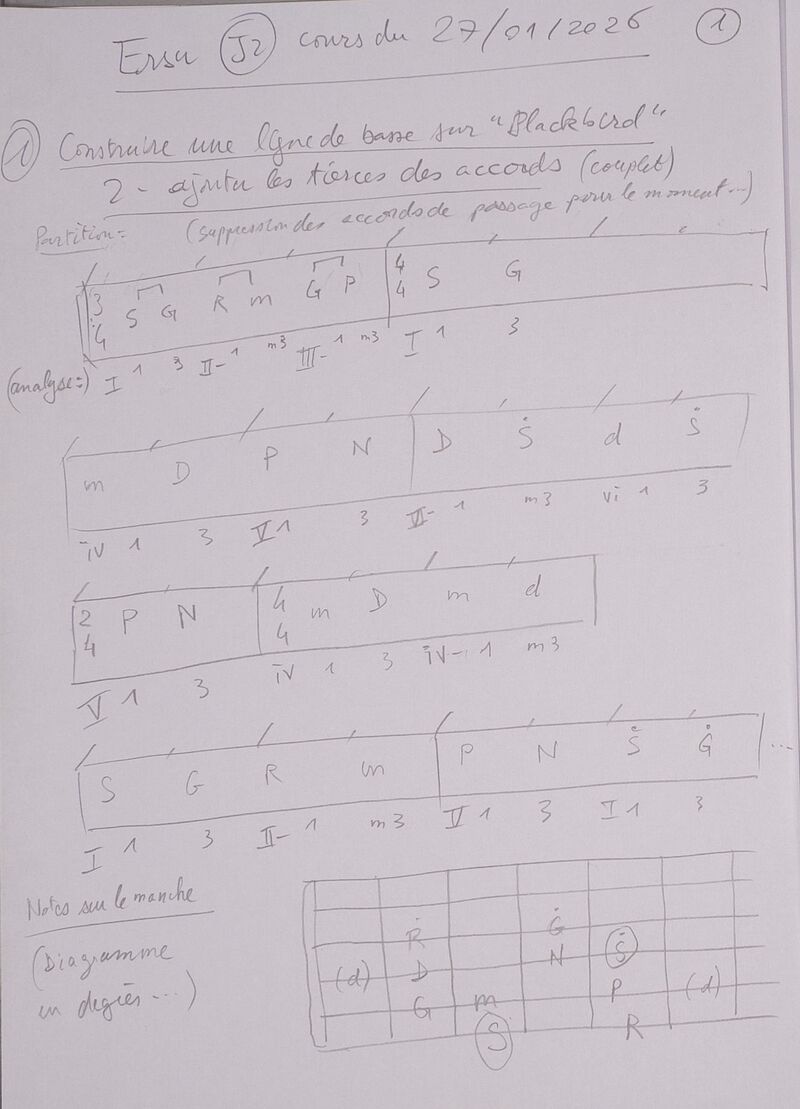 Ersu J2 cours du 27/01/2026 1
1 Construire une ligne de basse sur "Blackbird"
2 - ajouter les tierces des accords (couplet)
(suppression des accords de passage pour le moment...)
Partition =
3/4 S G R m G P 4/4 S G
(analyse =) I 1 3 II- 1 m3 III- 1 m3 I 1 3
m D P N D Ṡ d Ṡ
iv 1 3 V 1 3 VI- 1 m3 vi 1 3
2/4 P N 4/4 m D m d
V 1 3 iv 1 3 iv- 1 m3
S G R m P N Ṡ Ġ ...
I 1 3 II- 1 m3 V 1 3 I 1 3
Notes sur le manche
(Diagramme
en degrés ...)
Ṙ Ġ
(d) D N Ṡ
G m P (d)
S R